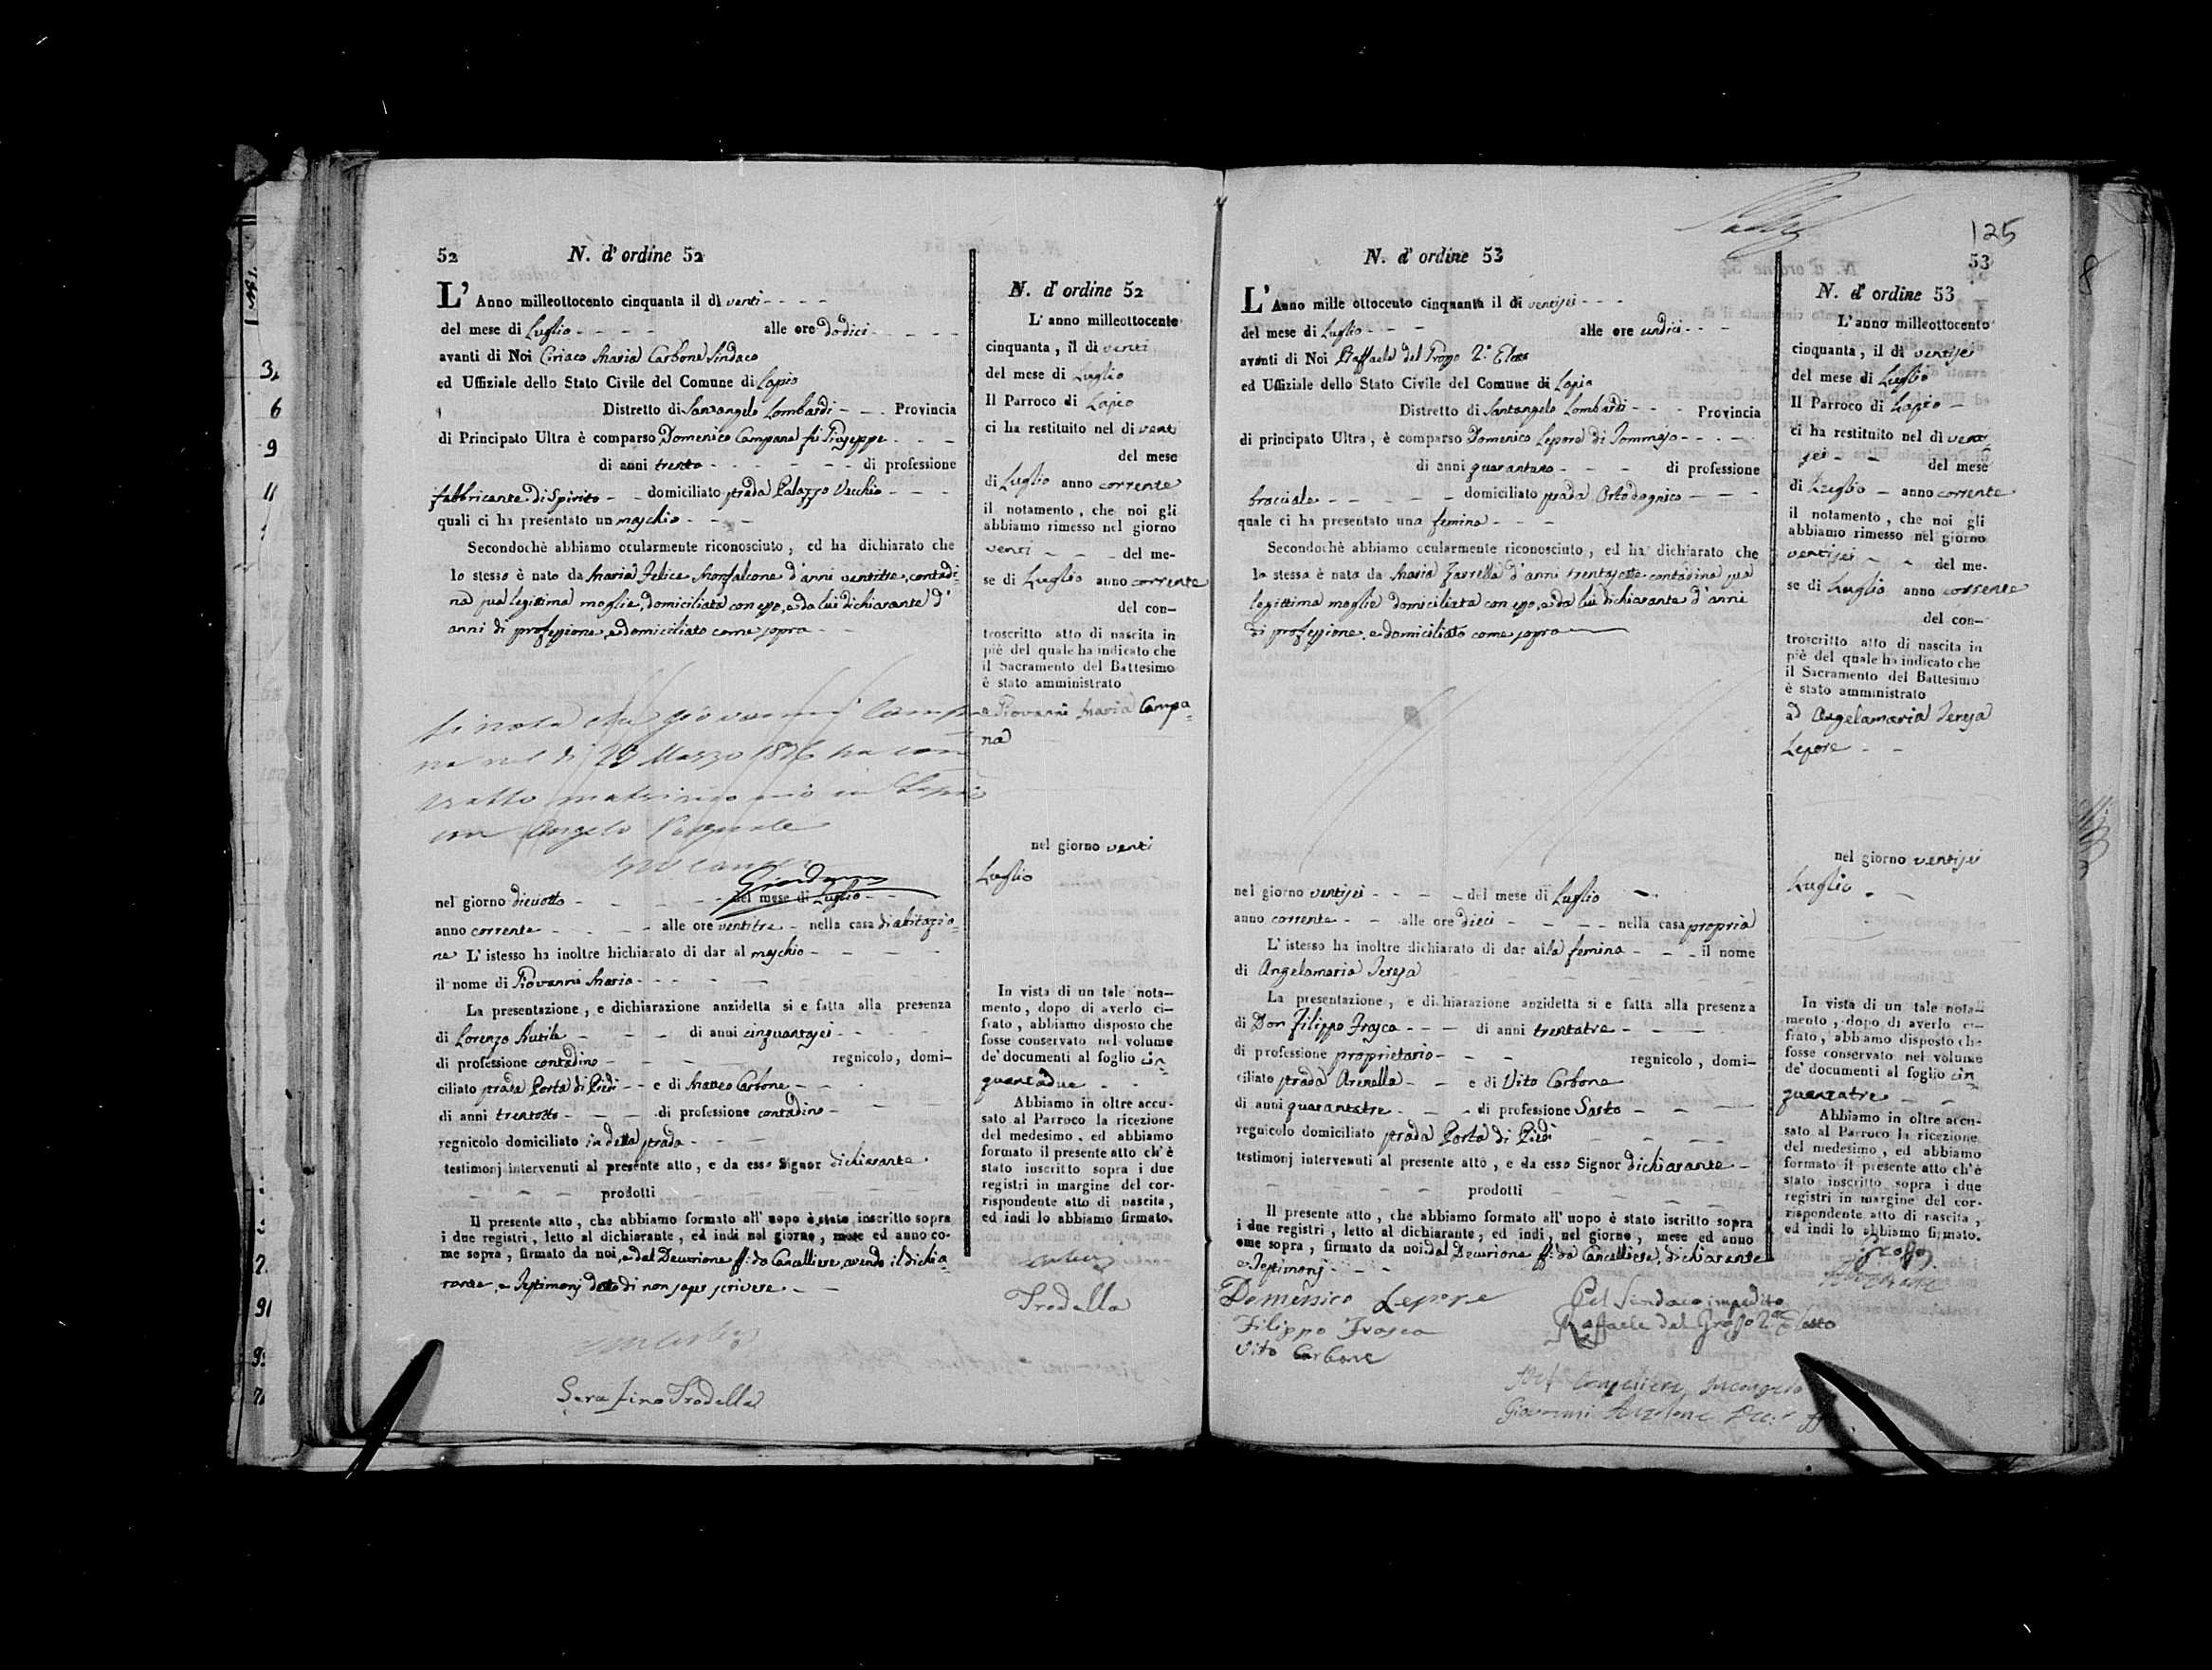 52
N. d' ordine 52
L' Anno milleottocento cinquanta il di venti
del mese di Luglio alle ore dodici
avanti di Noi Ciriaco Maria Carbone Sindaco
ed Uffiziale dello Stato Civile del Comune di Lapio
Distretto di Santangelo Lombardi Provincia
di Principato Ultra è comparso Domenico Campana fu Giuseppe
di anni trenta di professione
fabbricante di Spirito domiciliato strada Palazzo Vecchio
quali ci ha presentato un maschio
Secondochè abbiamo ocularmente riconosciuto, ed ha dichiarato che
lo stesso è nato da Maria Felice Monfalcone d'anni ventitre, contadi-
na sua legittima moglie, domiciliata con esso, e da lui dichiarante d'
anni di professione, e domiciliato come sopra
Si nota che Giovanni Campa-
na nel dì 20 Marzo 1876 ha con-
tratto matrimonio in Lapio
con Angela
nel giorno dieciotto del mese di Luglio
anno corrente alle ore ventitre nella casa di abitazio-
ne L' istesso ha inoltre hichiarato di dar al maschio
il nome di Giovanni Maria
La presentazione, e dichiarazione anzidetta si e fatta alla presenza
di Lorenzo di anni cinquantasei
di professione contadino regnicolo, domi-
ciliato strada Porta di Piedi e di Matteo Carbone
di anni trentotto di professione contadino
regnicolo domiciliato in detta strada
testimonj intervenuti al presente atto, e da esso Signor dichiarante
prodotti
Il presente atto, che abbiamo formato all' uopo è stato inscritto sopra
i due registri, letto al dichiarante, ed indi nel giorno, mese ed anno co-
me sopra, firmato da noi, e dal Decurione ff. da Cancelliere, avendo il dichia-
rante, e Testimonj detto di non saper scrivere
Serafino Trodella
N. d' ordine 52
L' anno milleottocento
cinquanta, il di venti
del mese di Luglio
Il Parroco di Lapio
ci ha restituito nel di venti
del mese
di Luglio anno corrente
il notamento, che noi gli
abbiamo rimesso nel giorno
venti del me-
se di Luglio anno corrente
del con-
troscritto atto di nascita in
piè del quale ha indicato che
il Sacramento del Battesimo
è stato amministrato
a Giovanni Maria Campa-
na
nel giorno venti
Luglio
In vista di un tale nota-
mento, dopo di averlo ci-
frato, abbiamo disposto che
fosse conservato nel volume
de' documenti al foglio cin-
quantadue
Abbiamo in oltre accu-
sato al Parroco la ricezione
del medesimo, ed abbiamo
formato il presente atto ch' è
stato inscritto sopra i due
registri in margine del cor-
rispondente atto di nascita,
ed indi lo abbiamo firmato.
Trodella
125
53
N. d' ordine 53
L' Anno mille ottocento cinquanta il di ventisei
del mese di Luglio alle ore undici
avanti di Noi Raffaele del Grosso 2.° Eletto
ed Uffiziale dello Stato Civile del Comune di Lapio
Distretto di Santangelo Lombardi Provincia
di principato Ultra, è comparso Domenico Lepore di Tommaso
di anni quarantuno di professione
bracciale domiciliato strada Ortodognico
quale ci ha presentato una femina
Secondochè abbiamo ocularmente riconosciuto, ed ha dichiarato che
la stessa è nata da Maria Zarrella d'anni trentasette contadina sua
legittima moglie domiciliata con esso, e da lui dichiarante d'anni
di professione, e domiciliato come sopra
nel giorno ventisei del mese di Luglio
anno corrente alle ore dieci nella casa propria
L' istesso ha inoltre dichiarato di dar alla femina il nome
di Angelamaria Teresa
La presentazione, e dichiarazione anzidetta si e fatta alla presenza
di Don Filippo Frasca di anni trentatre
di professione proprietario regnicolo, domi-
ciliato strada Arenella e di Vito Carbone
di anni quarantatre di professione Sarto
regnicolo domiciliato strada Porta di Piedi
testimonj intervenuti al presente atto, e da esso Signor dichiarante
prodotti
Il presente atto, che abbiamo formato all' uopo è stato iscritto sopra
i due registri, letto al dichiarante, ed indi, nel giorno, mese ed anno
ome sopra, firmato da noi dal Decurione ff. da Cancelliere, dichiarante
e Testimonj
Domenico Lepore
Filippo Frasca
Vito Carbone
Pel Sindaco impedito
Raffaele del Grosso 2.° Eletto
Giovanni
N. d' ordine 53
L' anno milleottocento
cinquanta, il di ventisei
del mese di Luglio
Il Parroco di Lapio
ci ha restituito nel di venti-
sei del mese
di Luglio anno corrente
il notamento, che noi gli
abbiamo rimesso nel giorno
ventisei del me-
se di Luglio anno corrente
del con-
troscritto atto di nascita in
piè del quale ha indicato che
il Sacramento del Battesimo
è stato amministrato
ad Angelamaria Teresa
Lepore
nel giorno ventisei
Luglio
In vista di un tale nota-
mento, dopo di averlo ci-
frato, abbiamo disposto che
fosse conservato nel volume
de' documenti al foglio cin-
quantatre
Abbiamo in oltre accu-
sato al Parroco la ricezione
del medesimo, ed abbiamo
formato il presente atto ch'è
stato inscritto sopra i due
registri in margine del cor-
rispondente atto di nascita,
ed indi lo abbiamo firmato.